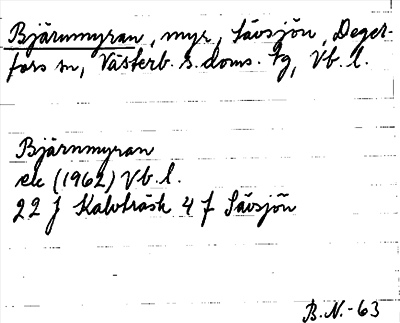 Bjärnmyran, myr, Sävsjön, Deger-
fors sn, Västerb. s. doms. tg, Vb. l.
Bjärnmyran
ek (1962) Vb. l.
22 J Kalvträsk 4 f Sävsjön
B.N.-63